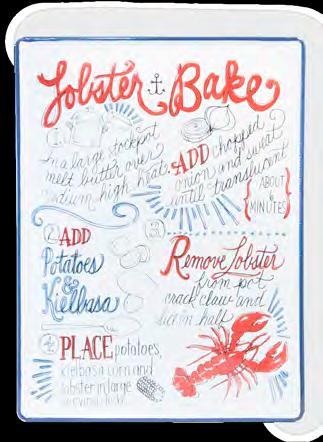 Lobster Bake
1
In a large stockpot
melt butter over
medium high heat.
ADD chopped
onion and sweat
until translucent
ABOUT
MINUTES
2 ADD
Potatoes
&
Kielbasa
3
Remove Lobster
from pot,
crack claw and
in half
4
PLACE potatoes,
kielbasa corn and
lobster in large